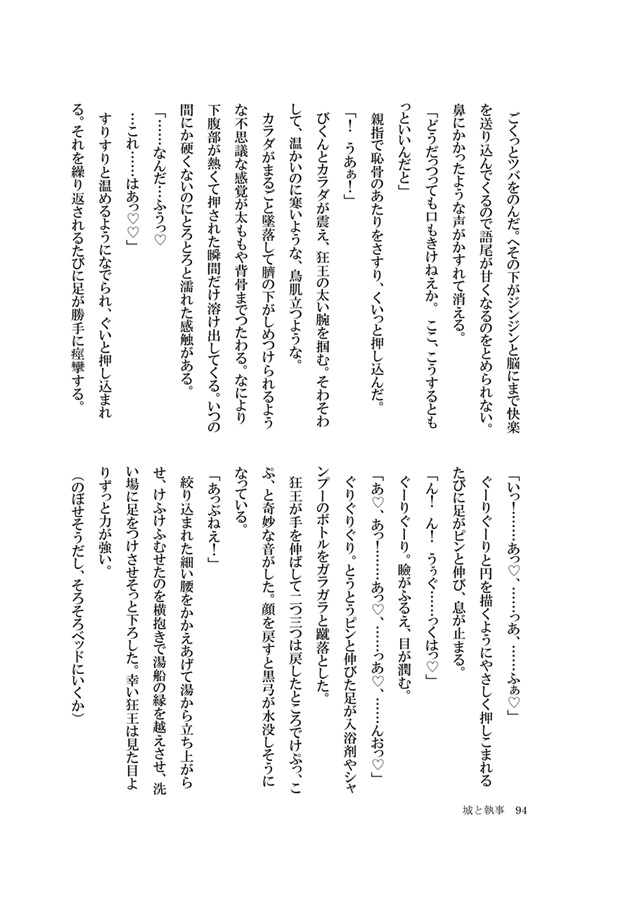 ごくっとツバをのんだ。へその下がジンジンと脳にまで快楽
を送り込んでくるので語尾が甘くなるのをとめられない。
鼻にかかったような声がかすれて消える。
「どうだつっても口もきけねえか。ここ、こうするとも
っといいんだと」
親指で恥骨のあたりをさすり、くいっと押し込んだ。
「！ うあぁ！」
びくんとカラダが震え、狂王の太い腕を掴む。そわそわ
して、温かいのに寒いような、鳥肌立つような。
カラダがまるごと墜落して臍の下がしめつけられるよう
な不思議な感覚が太ももや背骨までつたわる。なにより
下腹部が熱くて押された瞬間だけ溶け出してくる。いつの
間にか硬くないのにとろとろと濡れた感触がある。
「……なんだ…ふうっ♡
…これ……はあっ♡♡」
すりすりと温めるようになでられ、ぐいと押し込まれ
る。それを繰り返されるたびに足が勝手に痙攣する。
「いっ！……あっ♡、……っあ、……ふぁ♡」
ぐーりぐーりと円を描くようにやさしく押しこまれる
たびに足がピンと伸び、息が止まる。
「ん！ ん！ うぅぐ……っくはっ♡」
ぐーりぐーり。瞼がふるえ、目が潤む。
「あ♡、あっ！……あっ♡、……っあ♡、……んおっ♡」
ぐりぐりぐり。とうとうピンと伸びた足が入浴剤やシャ
ンプーのボトルをガラガラと蹴落とした。
狂王が手を伸ばして二つ三つは戻したところでけぷっ、こ
ぷ、と奇妙な音がした。顔を戻すと黒弓が水没しそうに
なっている。
「あっぶねえ！」
絞り込まれた細い腰をかかえあげて湯から立ち上がら
せ、けふけふむせたのを横抱きで湯船の縁を越えさせ、洗
い場に足をつけさせそっと下ろした。幸い狂王は見た目よ
りずっと力が強い。
（のぼせそうだし、そろそろベッドにいくか）
城と執事 94